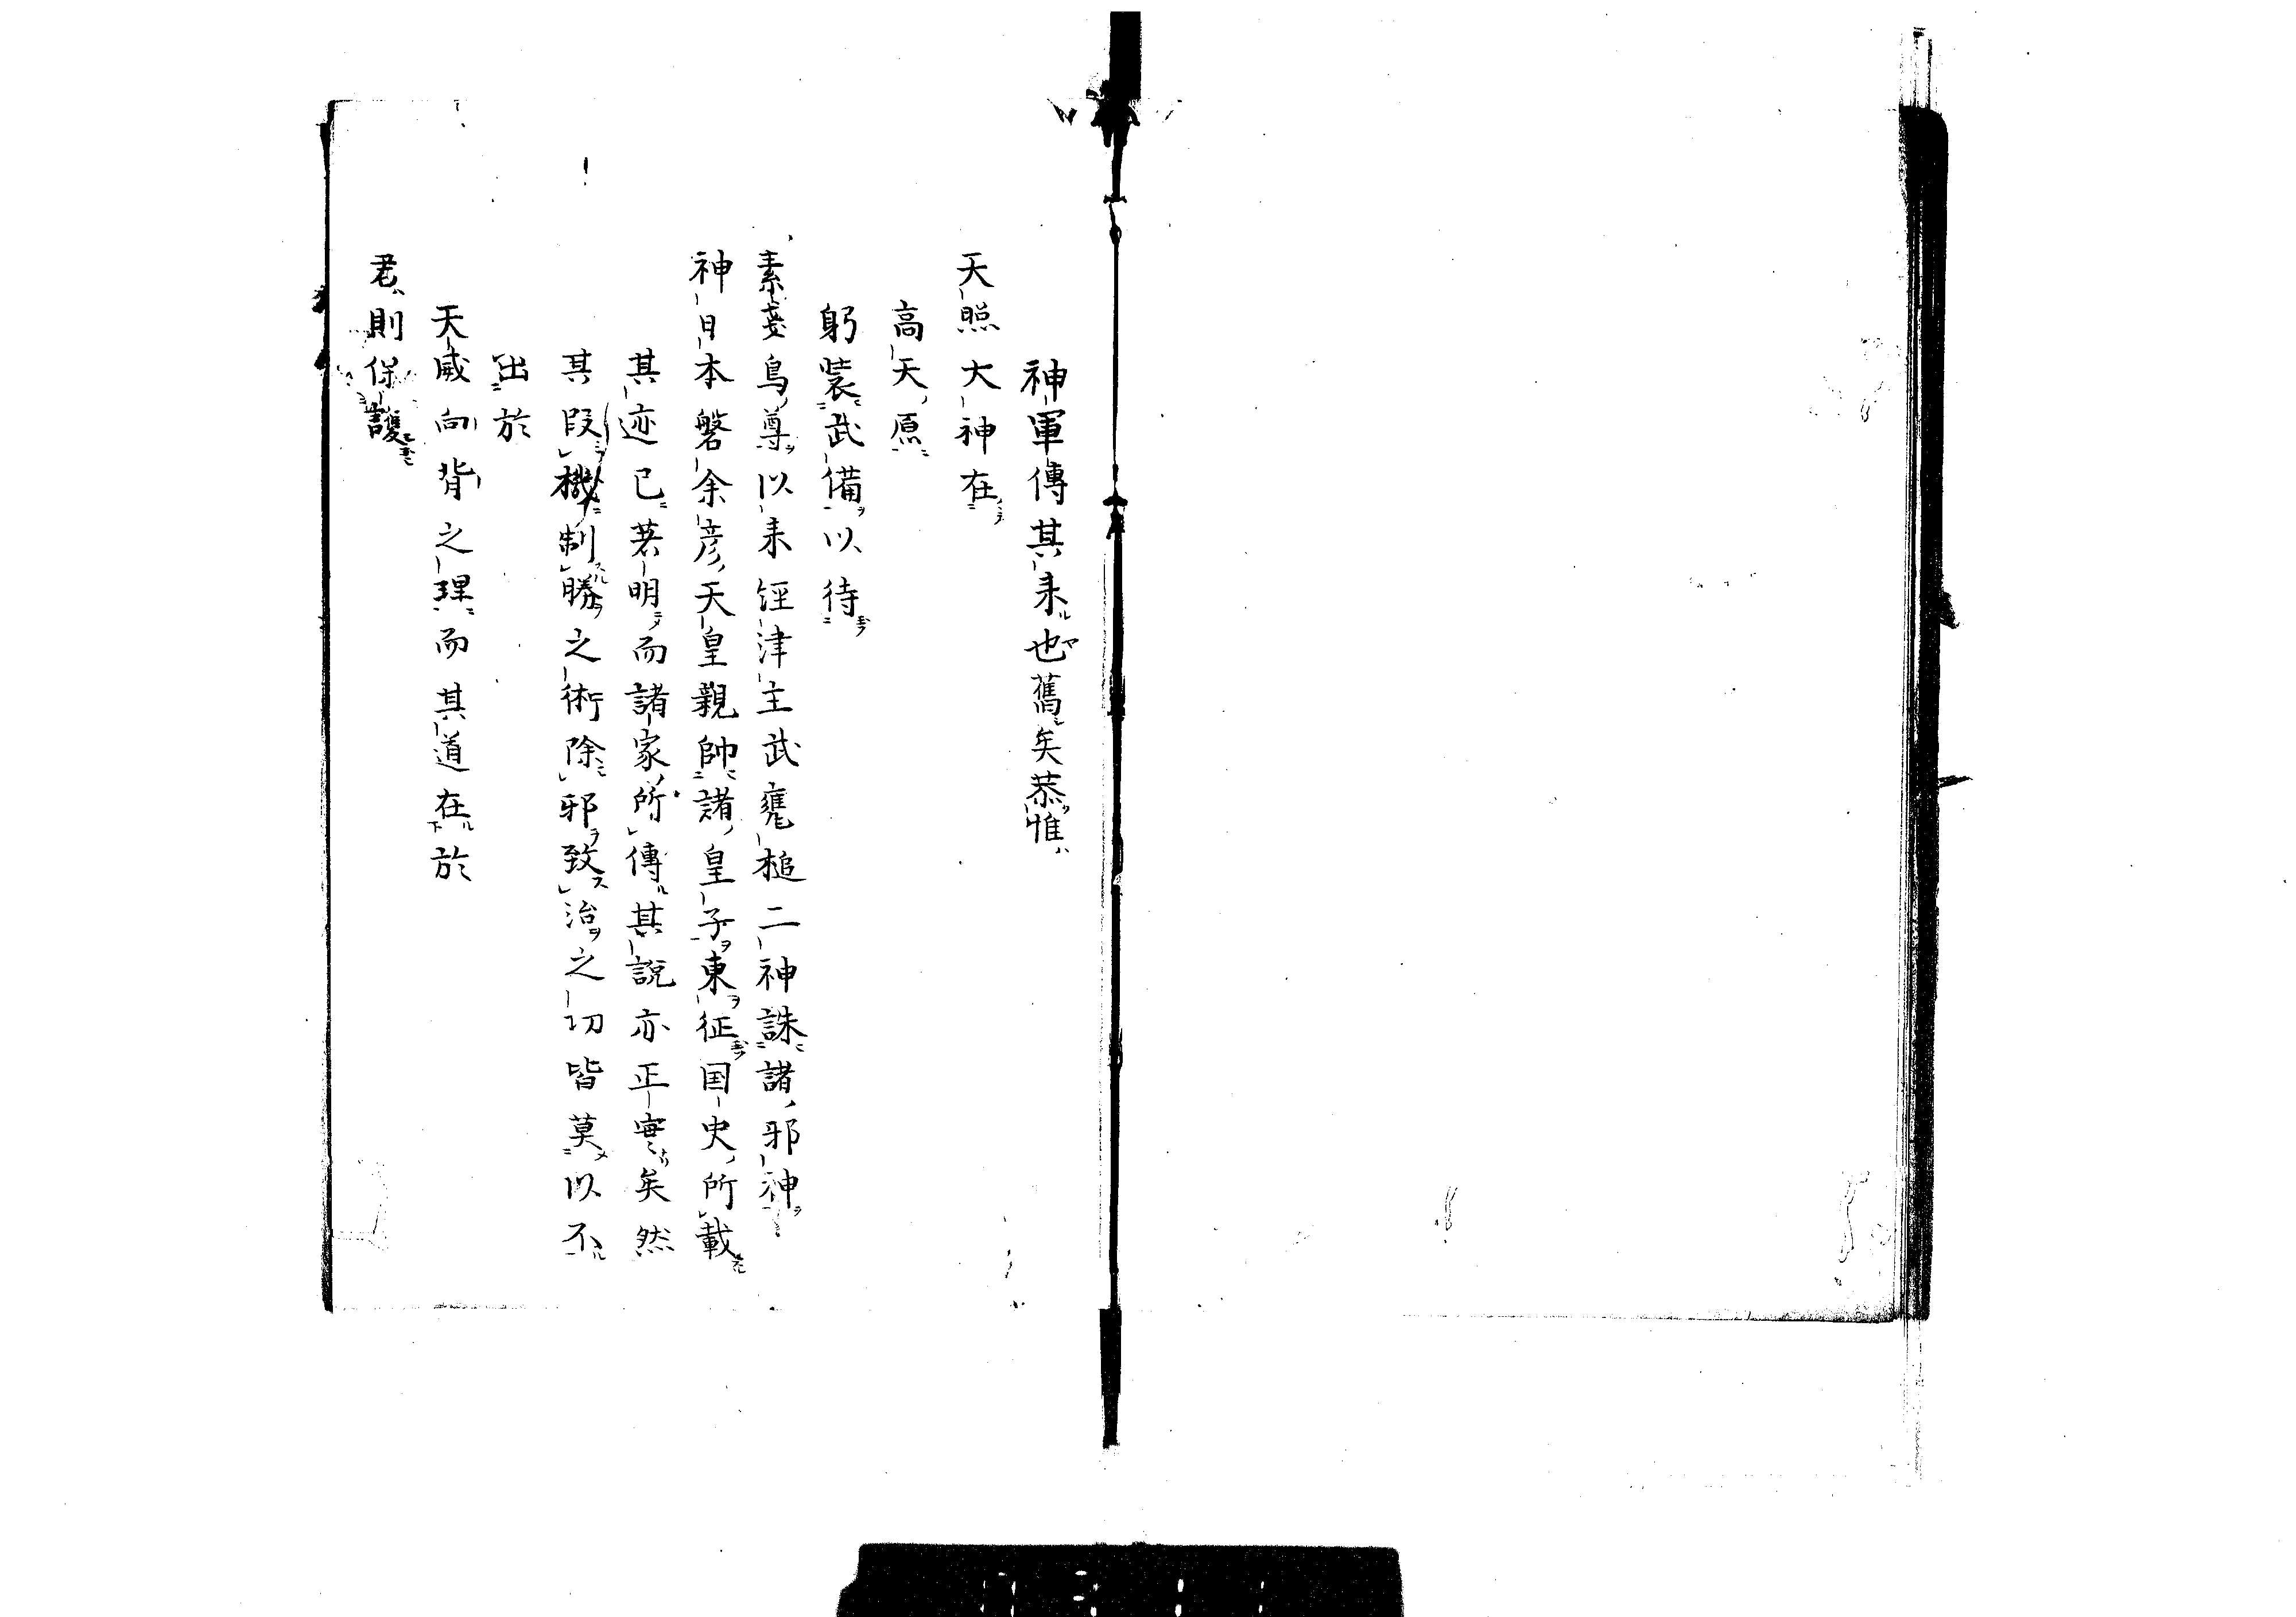 神軍傳其来也舊矣恭惟
天照大神在
高天原
躬裝武備以待
素戔烏尊以来経津主武甕槌二神誅諸邪神
神日本磐余彦天皇親帥諸皇子東征国史所載
其迹已著明而諸家所傳其説亦正実矣然
其段機制勝之術除邪致治之切皆莫以不
出於
天威向背之理而其道在於
君則保護